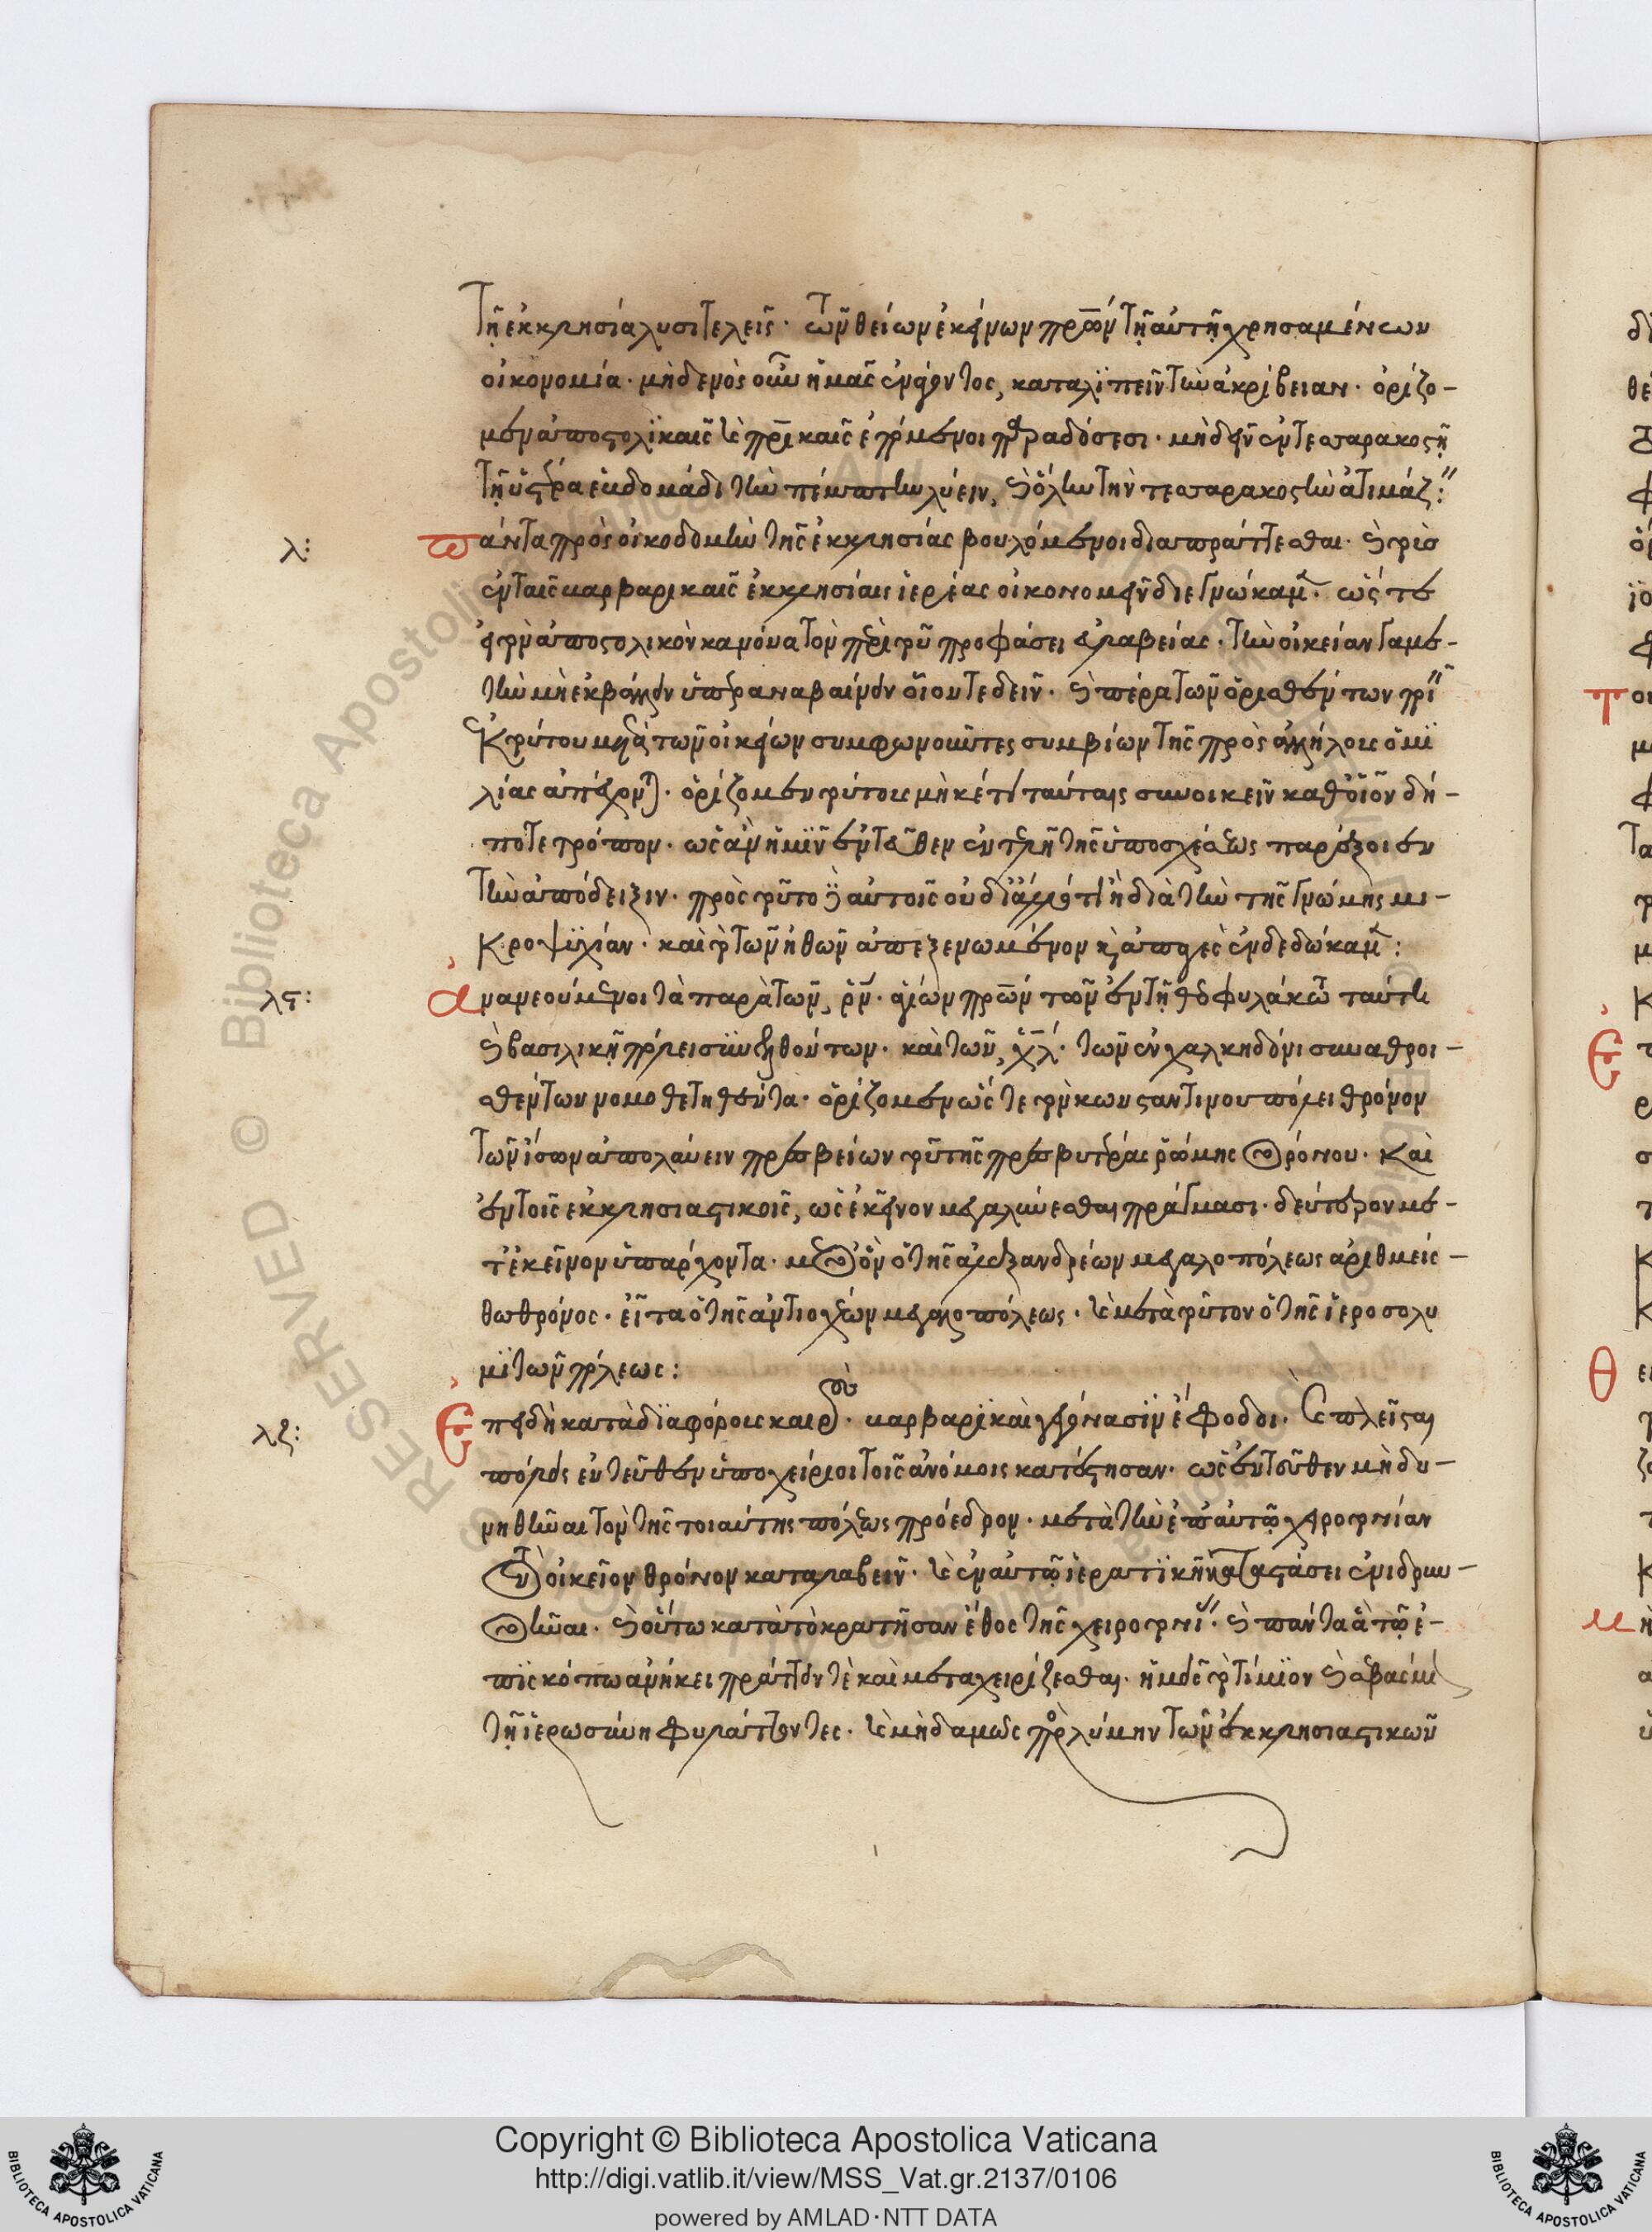 τῇ ἐκκλησία λυσιτελεῖς· τῶν θείων ἐκείνων πρων τῇ αὐτῇ χρησαμένων
οἰκονομία· μηδενὸς οὖν ἡμᾶς ἐνάγοντος, καταλϊπεῖν τὴν ἀκρίβειαν· ὁρίζο-
μεν ἀποστολϊκαῖς καὶ πρικαῖς ἑπόμενοι παραδόσεσι· μὴ δεῖν ἐν τεσσαρακοστῇ
τῇ ὑστέρα ἑβδομάδι τὴν πέμπτην λύειν, καὶ ὅλην τὴν τεσσαρακοστὴν ἀτιμάζ:
λ:
πάντα πρὸς οἰκοδομὴν τῆς ἐκκλησίας βουλόμενοι διαπράττεσθαι· καὶ τοὺς
ἐν ταῖς βαρβαρικαῖς ἐκκλησίαις ἱερέας οἰκονομεῖν διεγνώκαμ· ὥστε
εἰ τὸν ἀποστολικὸν κανόνα τὸν περὶ τοῦ προφάσει εὐλαβείας· τὴν οἰκείαν γαμε-
τὴν μὴ ἐκβάλλειν ὑπεραναβαίνειν οἴονται δεῖν· καὶ πέρα τῶν ὁρισθέντων
ἐκ τούτου μετὰ τῶν οἰκείων συμφωνοῦντες συμβίων τῆς πρὸς ἀλλήλους ὁμϊ
λίας ἀπέχονται· ὁρίζομεν τούτους μηκέτι ταύταις συνοικεῖν καθ' οἷον δή-
ποτε τρόπον· ὡς ἂν ἡμῖν ἐντεῦθεν ἐντελῆ τῆς ὑποσχέσεως παρέξοιεν
τὴν ἀπόδειξιν· πρὸς τοῦτο δὲ αὐτοῖς οὐ δι' ἄλλό τι ἢ διὰ τὴν τῆς γνώμης μι-
κροψϋχίαν· καὶ τὸ τῶν ἠθῶν ἀπεξενωμένον καὶ ἀπαγὲς ἐνδεδώκαμ:
λς:
Ἀνανεούμενοι τὰ παρὰ τῶν, ρν· ἁγίων πρων τῶν ἐν τῇ θεοφυλάκτω ταύτη
καὶ βασιλικῇ πόλει συνελθόντων· καὶ τῶν, χλ· τῶν ἐν χαλκηδόνι συναθροι-
σθέντων νομοθετηθέντα· ὁρίζομεν ὥστε τὸν κωνσταντινουπόλει θρόνον
τῶν ἴσων ἀπολαύειν πρεσβείων τοῦ τῆς πρεσβυτέρας ῥώμης θρόνου· καὶ
ἐν τοῖς ἐκκλησιαστικοῖς, ὡς ἐκεῖνον μεγαλύνεσθαι πράγμασι· δεύτερον με-
τ' ἐκεῖνον ὑπάρχοντα· μεθ' ὃν ὁ τῆς ἀλεξανδρέων μεγαλοπόλεως ἀριθμείσ-
θω θρόνος· εἶτα ὁ τῆς ἀντιοχέων μεγαλοπόλεως· καὶ μετὰ τοῦτον ὁ τῆς ἱεροσολυ
μϊτῶν πόλεως:
λζ:
Ἐπειδὴ κατὰ διαφόρους καιροὺς· βαρβαρϊκαὶ γεγόνασιν ἔφοδοι· καὶ πλεῖσται
πόλεις ἐντεῦθεν ὑποχείριοι τοῖς ἀνόμοις κατέστησαν· ὡς ἐντεῦθεν μὴ δυ-
νηθῆναι τὸν τῆς τοιαύτης πόλεως πρόεδρον· μετὰ τὴν ἐπ' αὐτῷ χειροτονίαν
τὸν οἰκεῖον θρόνον καταλαβεῖν· καὶ ἐν αὐτῷ ἱερατϊκῇ καταστάσει ἐνιδρυν-
θῆναι· καὶ οὕτω κατὰ τὸ κρατῆσαν ἔθος τῆς χειροτονί· καὶ πάντα ἃ τῷ ἐ-
πϊσκόπω ἀνήκει πράττειν τὲ καὶ μεταχειρίζεσθαι· ἡμεῖς τὸ τίμϊον καὶ σεβάσμι
τῇ ἱερωσύνη φυλάττοντες· καὶ μηδαμῶς πρὸς λύμην τῶν ἐκκλησιαστικῶν
Copyright © Biblioteca Apostolica Vaticana
http://digi.vatlib.it/view/MSS_Vat.gr.2137/0106
powered by AMLAD·NTT DATA